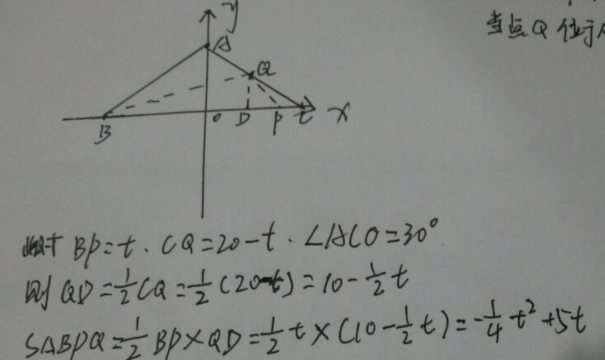 当点Q位于
y
A
Q
B
O
D
P
t
x
BP=t. CQ=20-t. ∠ACO=30°
则 QD=½CQ=½(20-t)=10-½t
S△BPQ=½BP×QD=½t×(10-½t)=-¼t²+5t